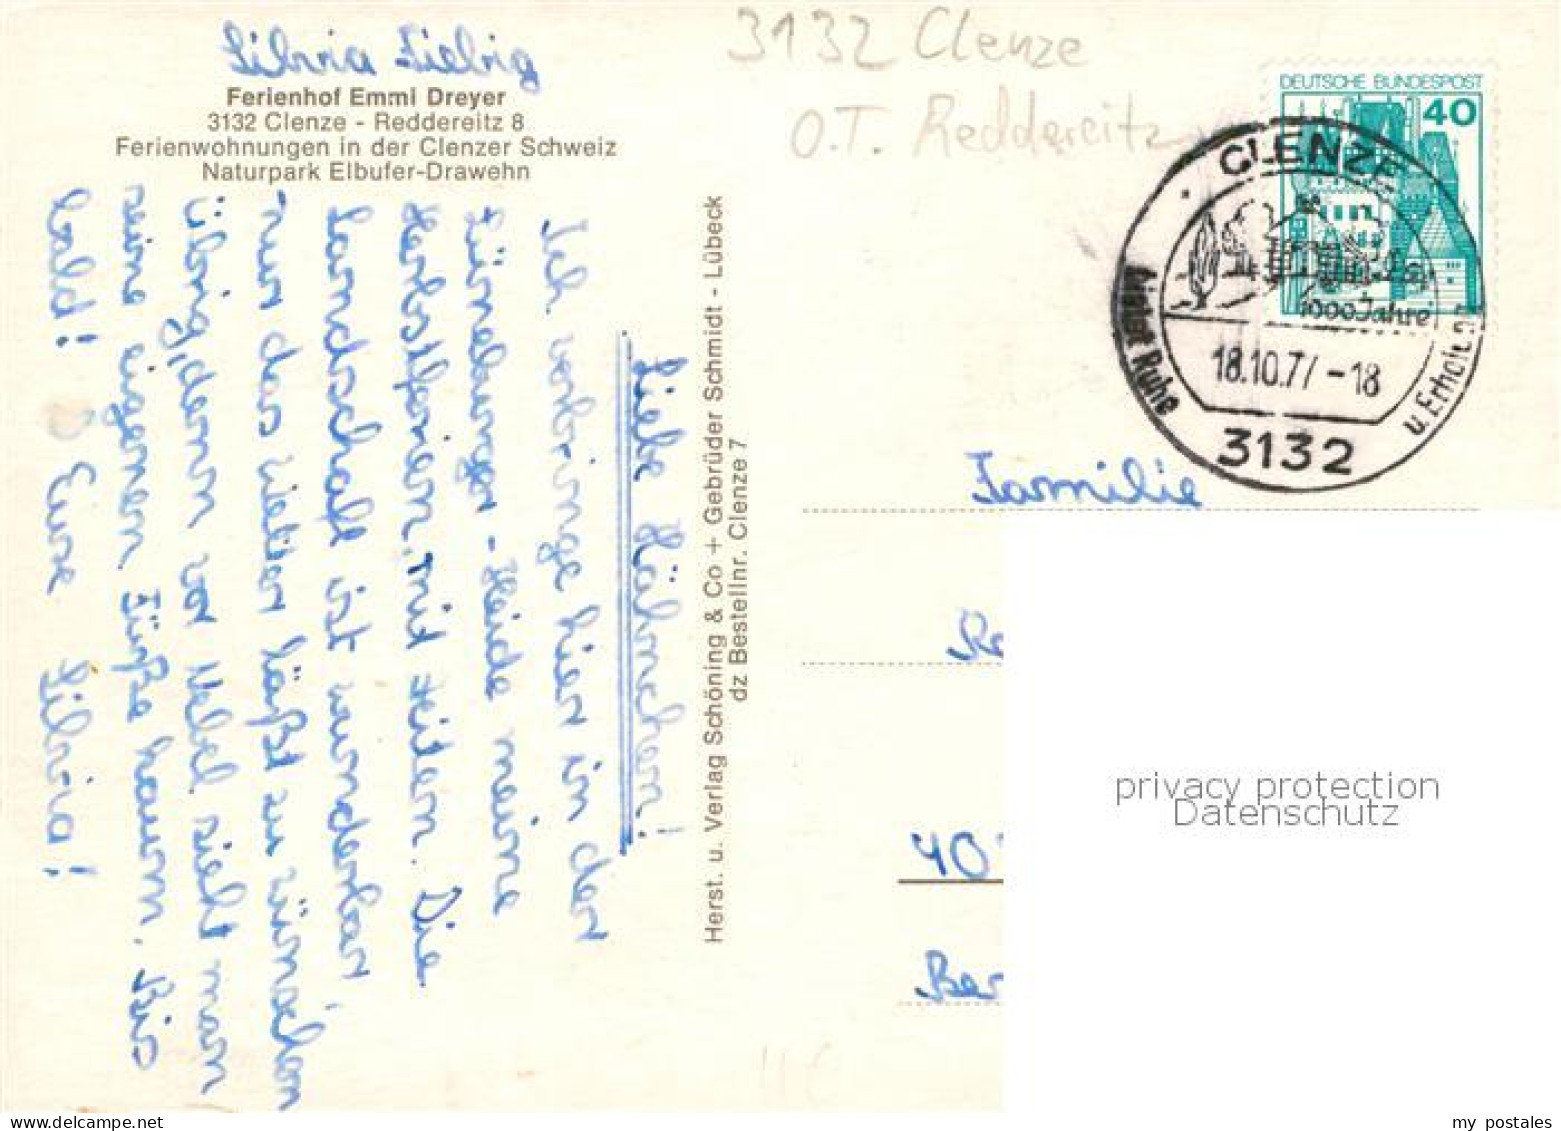 Silvia Fiebig
Ferienhof Emmi Dreyer
3132 Clenze - Reddereitz 8
Ferienwohnungen in der Clenzer Schweiz
Naturpark Elbufer-Drawehn
Liebe Hähnchen!
Ich verbringe hier in der
Lüneburger-Heide meine
Herbstferien mit Eltern. Die
Landschaft ist wunderbar,
nur das Wetter läßt zu wünschen
übrig, denn vor Nebel sieht man
seine eigenen Füße kaum. Bis
bald! Eure Silvia!
Herst. u. Verlag Schöning & Co + Gebrüder Schmidt - Lübeck
dz Bestellnr. Clenze 7
3132 Clenze
O.T. Reddereitz
DEUTSCHE BUNDESPOST
40
CLENZE
1000 Jahre
18.10.77-18
bietet Ruhe
u. Erholung
3132
Familie
40
Ber
privacy protection
Datenschutz
my postales